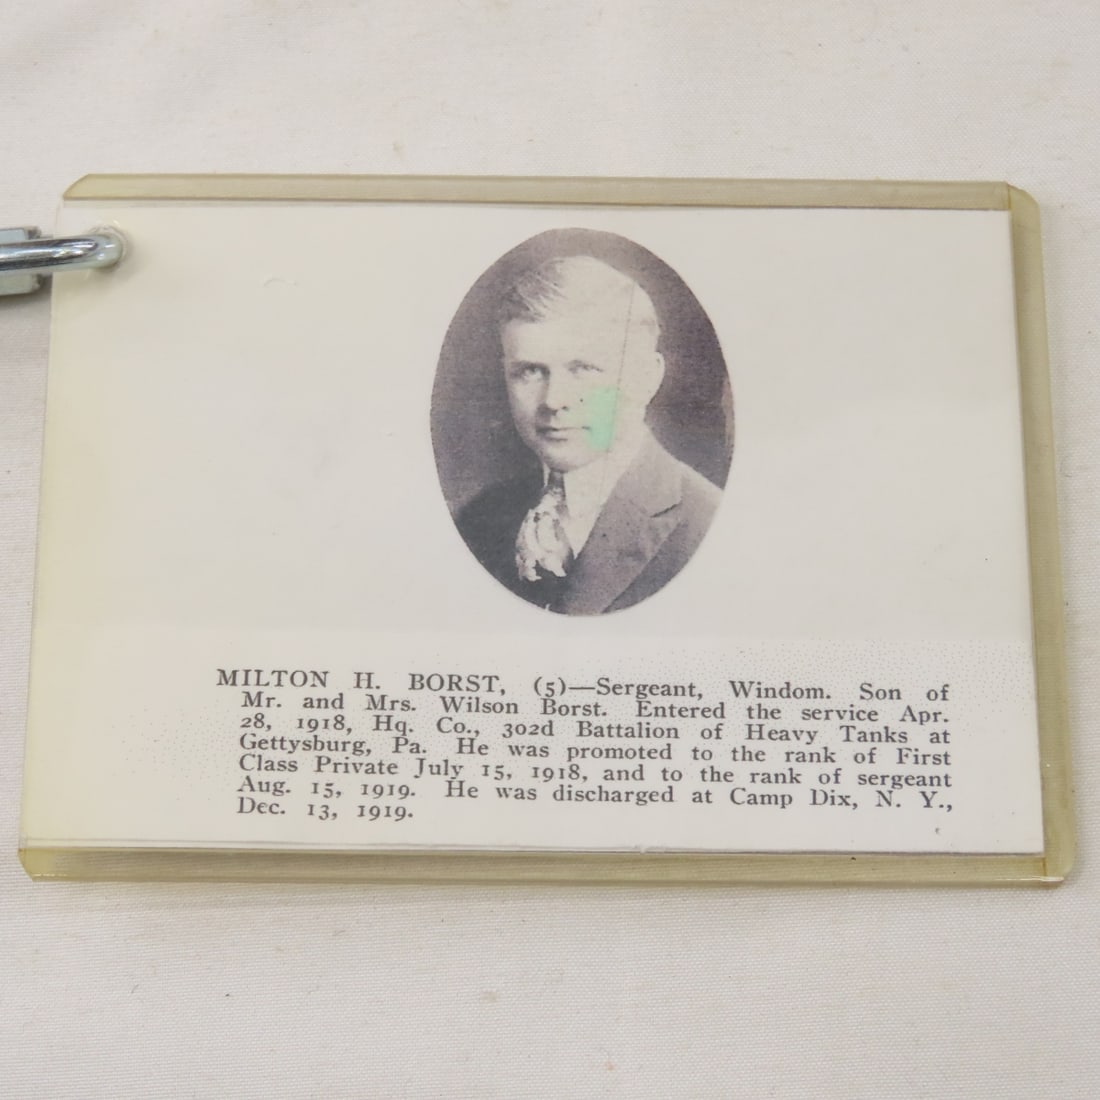 MILTON H. BORST, (5)—Sergeant, Windom. Son of
Mr. and Mrs. Wilson Borst. Entered the service Apr.
28, 1918, Hq. Co., 302d Battalion of Heavy Tanks at
Gettysburg, Pa. He was promoted to the rank of First
Class Private July 15, 1918, and to the rank of sergeant
Aug. 15, 1919. He was discharged at Camp Dix, N. Y.,
Dec. 13, 1919.